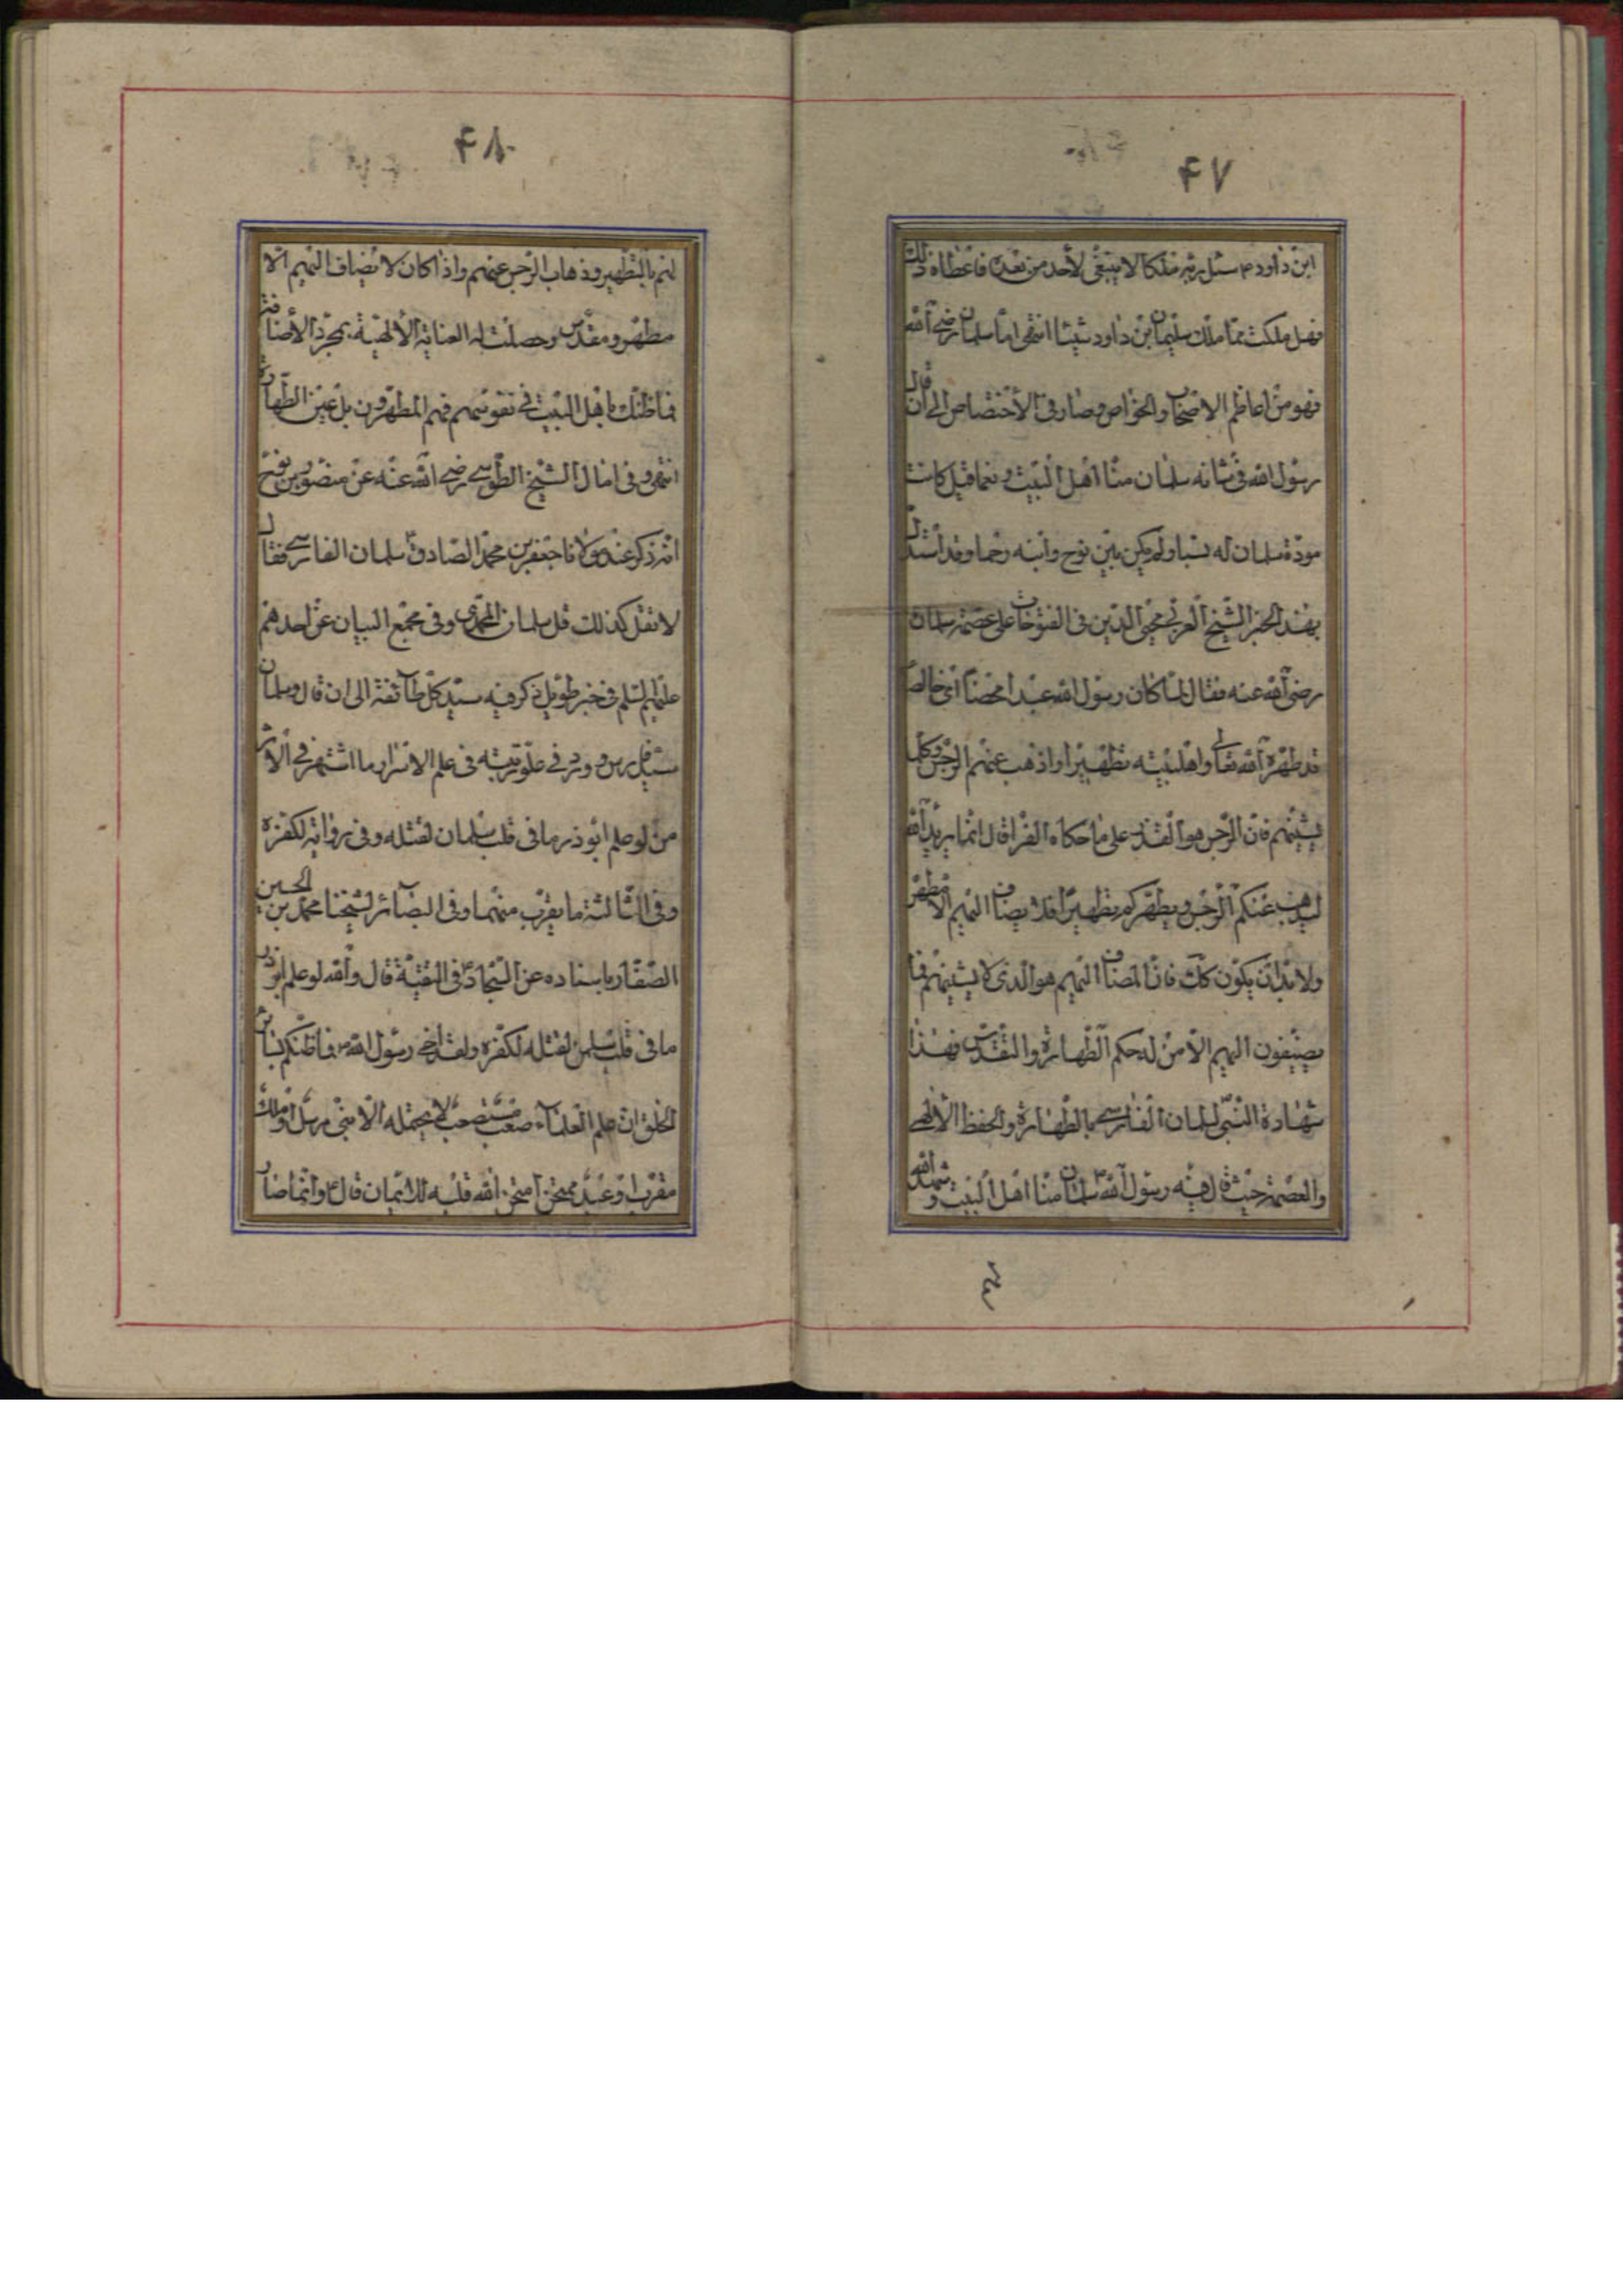 ۴۷
ابن داود ۴ سئل ربّه ملكا لا ينبغى لأحد من بعده فاعطاه ذلك
فهل ملكت ممّا ملك سليمان بن داود شيئا انتهى امّا سلمان رضى الله
فهو من اعاظم الاصحاب والخواص وصار فى الأختصاص الى ان قال
رسول الله فى شانه سلمان منّا اهل البيت ونعما قيل كانت
مودّة سلمان له نسبا ولم يكن بين نوح وابنه رحما وقد استدلّ
بهذا الخبر الشّيخ العربى محيى الدّين فى الفتوحات على عصمة سلمان
رضى الله عنه فقال لمّا كان رسول الله عبدا محضا اى خالصا
قد طهّره الله تعالى واهلبيته تطهيرا واذهب عنهم الرّجس وكلّما
يشينهم فانّ الرّجس هو القذر على ما حكاه الفرّا قال انّما يريد الله
ليذهب عنكم الرّجس ويطهّركم تطهيرا فلا يضاف اليهم الّا مطهّر
ولا بدّ ان يكون كذلك فانّ المضاف اليهم هو الّذى لا يشينهم فما
يضيفون اليهم الّا من له حكم الطّهارة والتّقديس فهذا
شهادة النّبىّ لسلمان الفارسى بالطّهارة والحفظ الألهى
والعصمة حيث قال فيه رسول الله ۳ سلمان منّا اهل البيت وشهد الله
۴۸
لهم بالتّطهير وذهاب الرّجس عنهم واذا كان لا يضاف اليهم الّا
مطهّر ومقدّس وحصلت له العناية الألهيّة بمجرّد الأضافة
فما ظنّك باهل البيت فى نفوسهم فهم المطهّرون بل عين الطّهارة
انتهى وفى امال الشّيخ الطّوسى رضى الله عنه عن منصور بن نوح
انّه ذكر عند مولانا جعفر بن محمّد الصّادق ۴ سلمان الفارسى فقال
لا تقل كذلك قل سلمان المحمّدى وفى مجمع البيان عن احدهم
عليهم السّلم فى خبر طويل ذكر فيه سيّد كلّ طائفة الى ان قال وسلمان
سيّد فارس وورد فى علوّ رتبته فى علم الاسرار ما اشتهر فى الأثر
من لو علم ابوذر ما فى قلب سلمان لقتله وفى رواية لكفره
وفى الثّالثة ما يقرب منهما وفى البصائر لشيخنا محمّد بن الحسين
الصّفّار باسناده عن السّجاد ۴ فى التّقيّة قال والله لو علم ابوذر
ما فى قلب سلمن لقتله لكفره ولقد اخى رسول الله ۳ فما ظنّكم بسائر
الخلق انّ علم العلماء صعب مستصعب لا يحتمله الّا نبىّ مرسل او ملك
مقرّب او عبد ممتحن امتحن الله قلبه للايمان قال ۴ وانّما صار